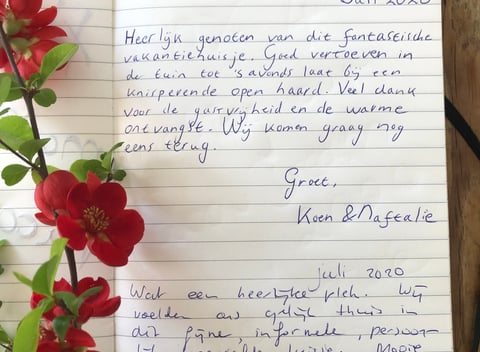 2020
Heerlijk genoten van dit fantastische
vakantiehuisje. Goed vertoeven in
de tuin tot 's avonds laat bij een
knisperende open haard. Veel dank
voor de gastvrijheid en de warme
ontvangst. Wij komen graag nog
eens terug.
Groet,
Koen & Naftalie
juli 2020
Wat een heerlijke plek. Wij
voelden ons gelijk thuis in
dit fijne, informele, persoon-
Mooie